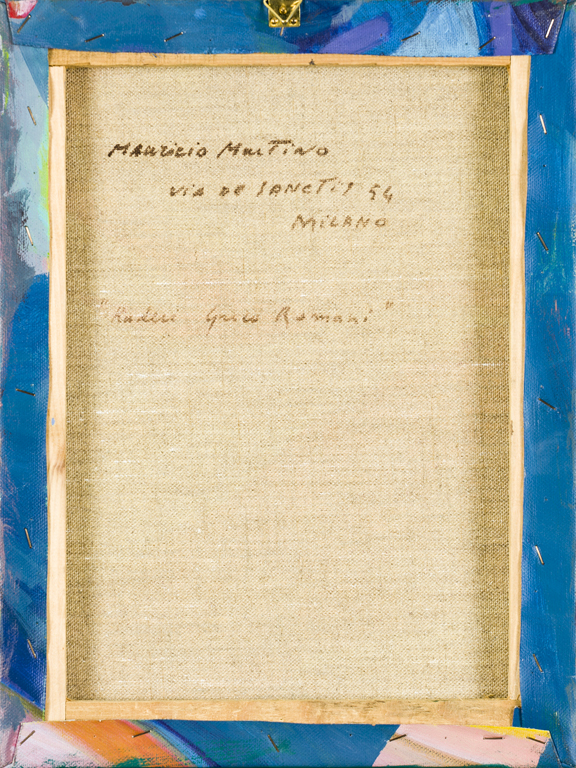 MAURIZIO MARTINO
VIA DE SANCTIS 54
MILANO
"Ruderi Greco Romani"